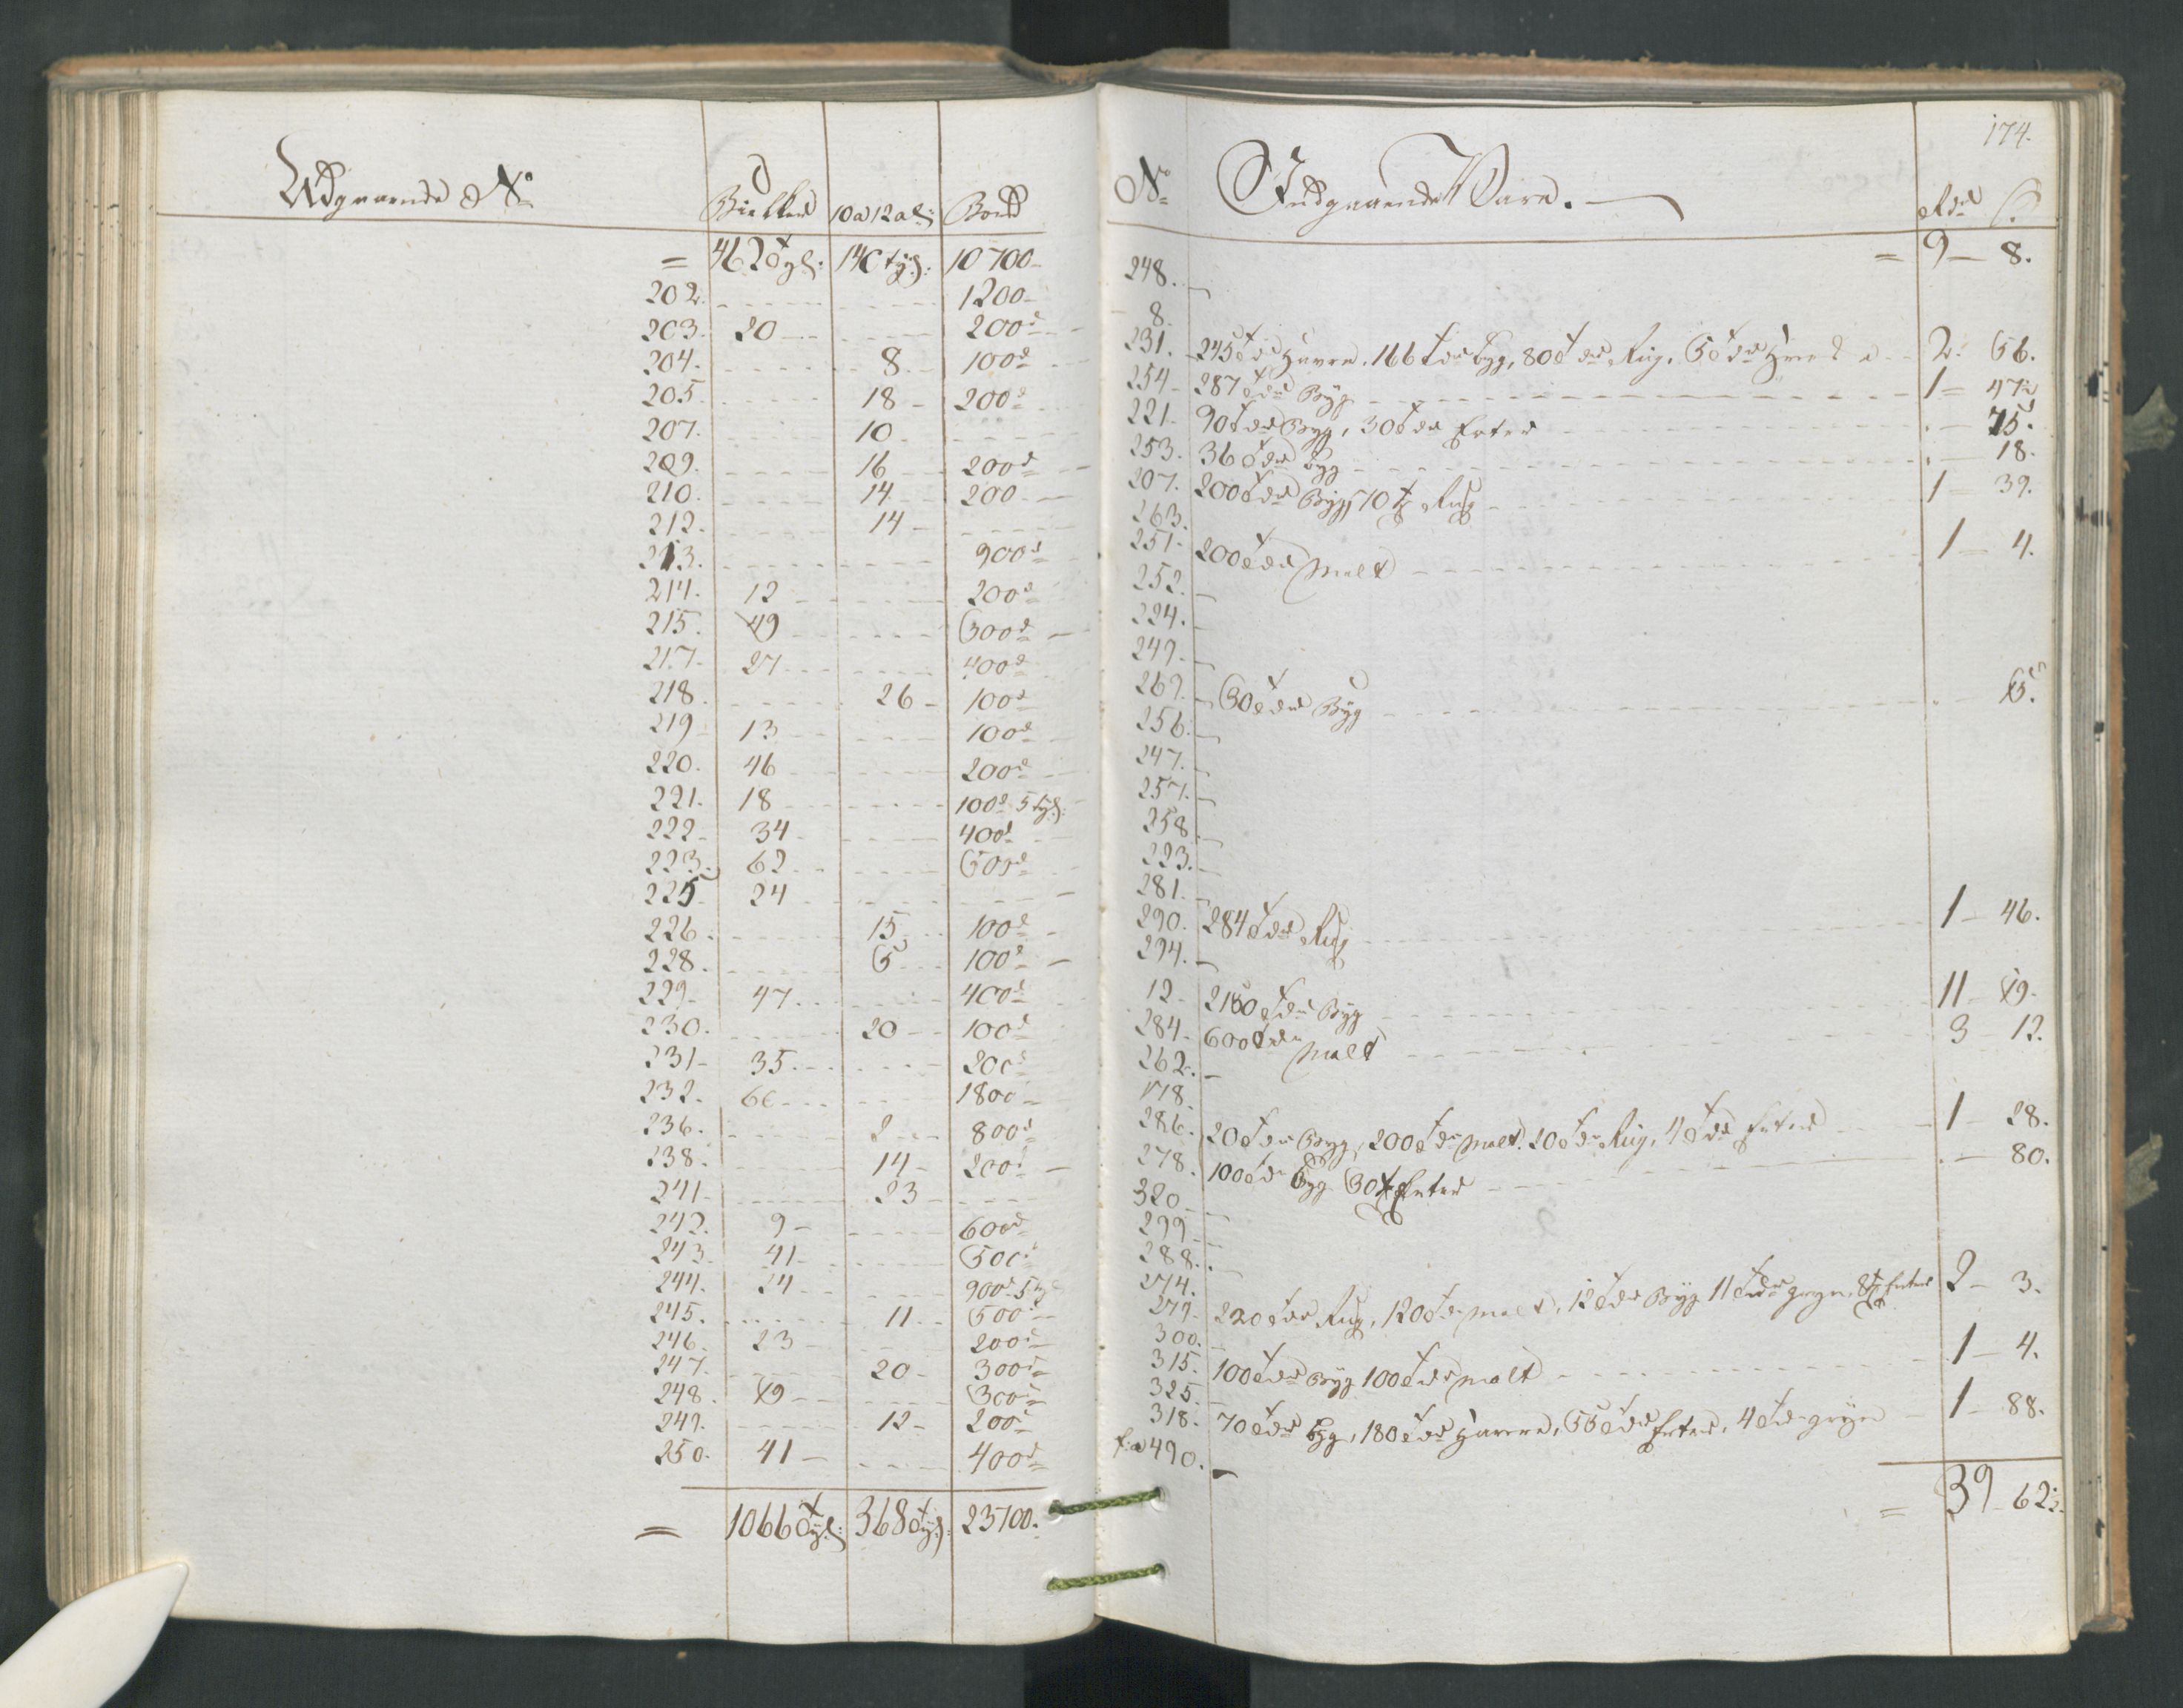 Udgaaende No
Bielker 10 a 12 al: Bord
= 462 tyl: 140 tyl: 10700
202. 1200
203. 20 200d
204. 8 100d
205. 18 200d
207. 10
209. 16 200d
210. 14 200
212. 14
213. 900d
214. 12 200d
215. 49 300d
217. 27 400d
218. 26 100d
219 13 100d
220. 46 200d
221. 18 100d 5 tyl:
222 34 400d
223. 62 500d
225 24
226. 15 100d
228. 5 100d
229 47 400d
230. 20 100d
231 35 200d
232. 60 1800
236. 2 800d
238. 14 200d
241 23
242. 9 600d
243 41 500d
244. 24 900d 5
245. 11 500d
246 23 200d
247. 20 300d
248. 49 300d
249. 12 200d
250. 41 400d
= 1066 tyl: 368 tyl: 23700.
174.
No Indgaaende Vare. Rdl S.
= 9 8.
248.
8.
231. 245 Tdr Havre, 166 Tdr Byg, 80 Tdr Rug, 5 Tdr 2. 56.
254 287 Tdr Byg 1 47½
221. 90 Tdr Byg, 30 Tdr Erter 75.
253. 36 Tdr Byg 18.
207. 200 Tdr Byg, 70 T Rug 1 39.
263.
251 200 Tdr Malt 1 4.
252.
224.
249.
269. 30 Tdr Byg 15.
256.
247.
257.
258
223.
281.
290. 284 Tdr Rug 1 46.
294.
12 2180 Tdr Byg 11 49.
284 600 Tdr Malt 3 12.
262.
178.
286. 20 Tdr Byg, 200 Tdr Malt. 20 Tdr Rug, 4 Tdr Erter 1 28.
278. 100 Tdr Byg 50 T Erter 80.
320
299
288.
274.
279 220 Tdr Rug, 120 Tdr Malt, 12 Tdr Byg 11 Tdr gryn, 8 T Erter 2 3.
300.
315. 100 Tdr Byg 100 Tdr Malt 1 4.
325.
318. 70 Tdr Byg, 180 Tdr Havre, 56 Tdr Erter, 4 Tdr gryn 1 88.
490.
= 39 62½